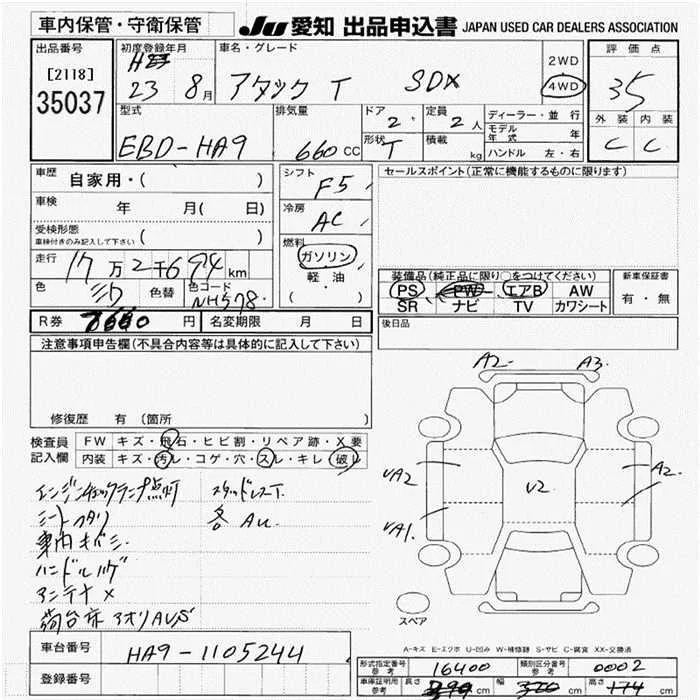 車内保管・守衛保管 JU 愛知 出品申込書 JAPAN USED CAR DEALERS ASSOCIATION
出品番号 初度登録年月 車名・グレード 2WD 評価点
[2118] H 23 8月 アタック T SDX 4WD 35
35037
型式 排気量 ドア 定員 ディーラー・並行 外装 内装
EBD-HA9 660 cc 2 2人 モデル年式 年 C C
形状 T 積載 kg ハンドル 左・右
車歴 自家用・( ) シフト F5 セールスポイント(正常に機能するものに限ります)
車検 年 月( 日) 冷房 AC
受検形態 ( )
車検付きのみ記入して下さい
燃料 ガソリン 軽・油 ( )
走行 17万2千694km
色 色替 色コード NH578
装備品(純正品に限り○をつけてください) 新車保証書
PS PW エアB AW 有・無
SR ナビ TV カワシート
R券 8660円 名変期限 月 日 後日品
注意事項申告欄(不具合内容等は具体的に記入して下さい)
修復歴 有 (箇所
検査員 FW キズ・飛石・ヒビ割・リペア跡・X要
記入欄 内装 キズ・汚レ・コゲ・穴・スレ・キレ・破レ
A2 A3
UA2 U2 A2
UA1
エンジンチェックランプ点灯 スタッドレスT.
シート 各AU.
車内キバミ
ハンドルハゲ
アンテナX
荷台床アオリAUS
スペア
A-キズ E-エクボ U-凹み W-補修跡 S-サビ C-腐食 XX-交換済
車台番号 HA9-1105244
登録番号
形式指定番号 参考 16400 類別区分番号 参考 0002
車庫証明用 参考 長さ cm 幅 cm 高さ 174cm